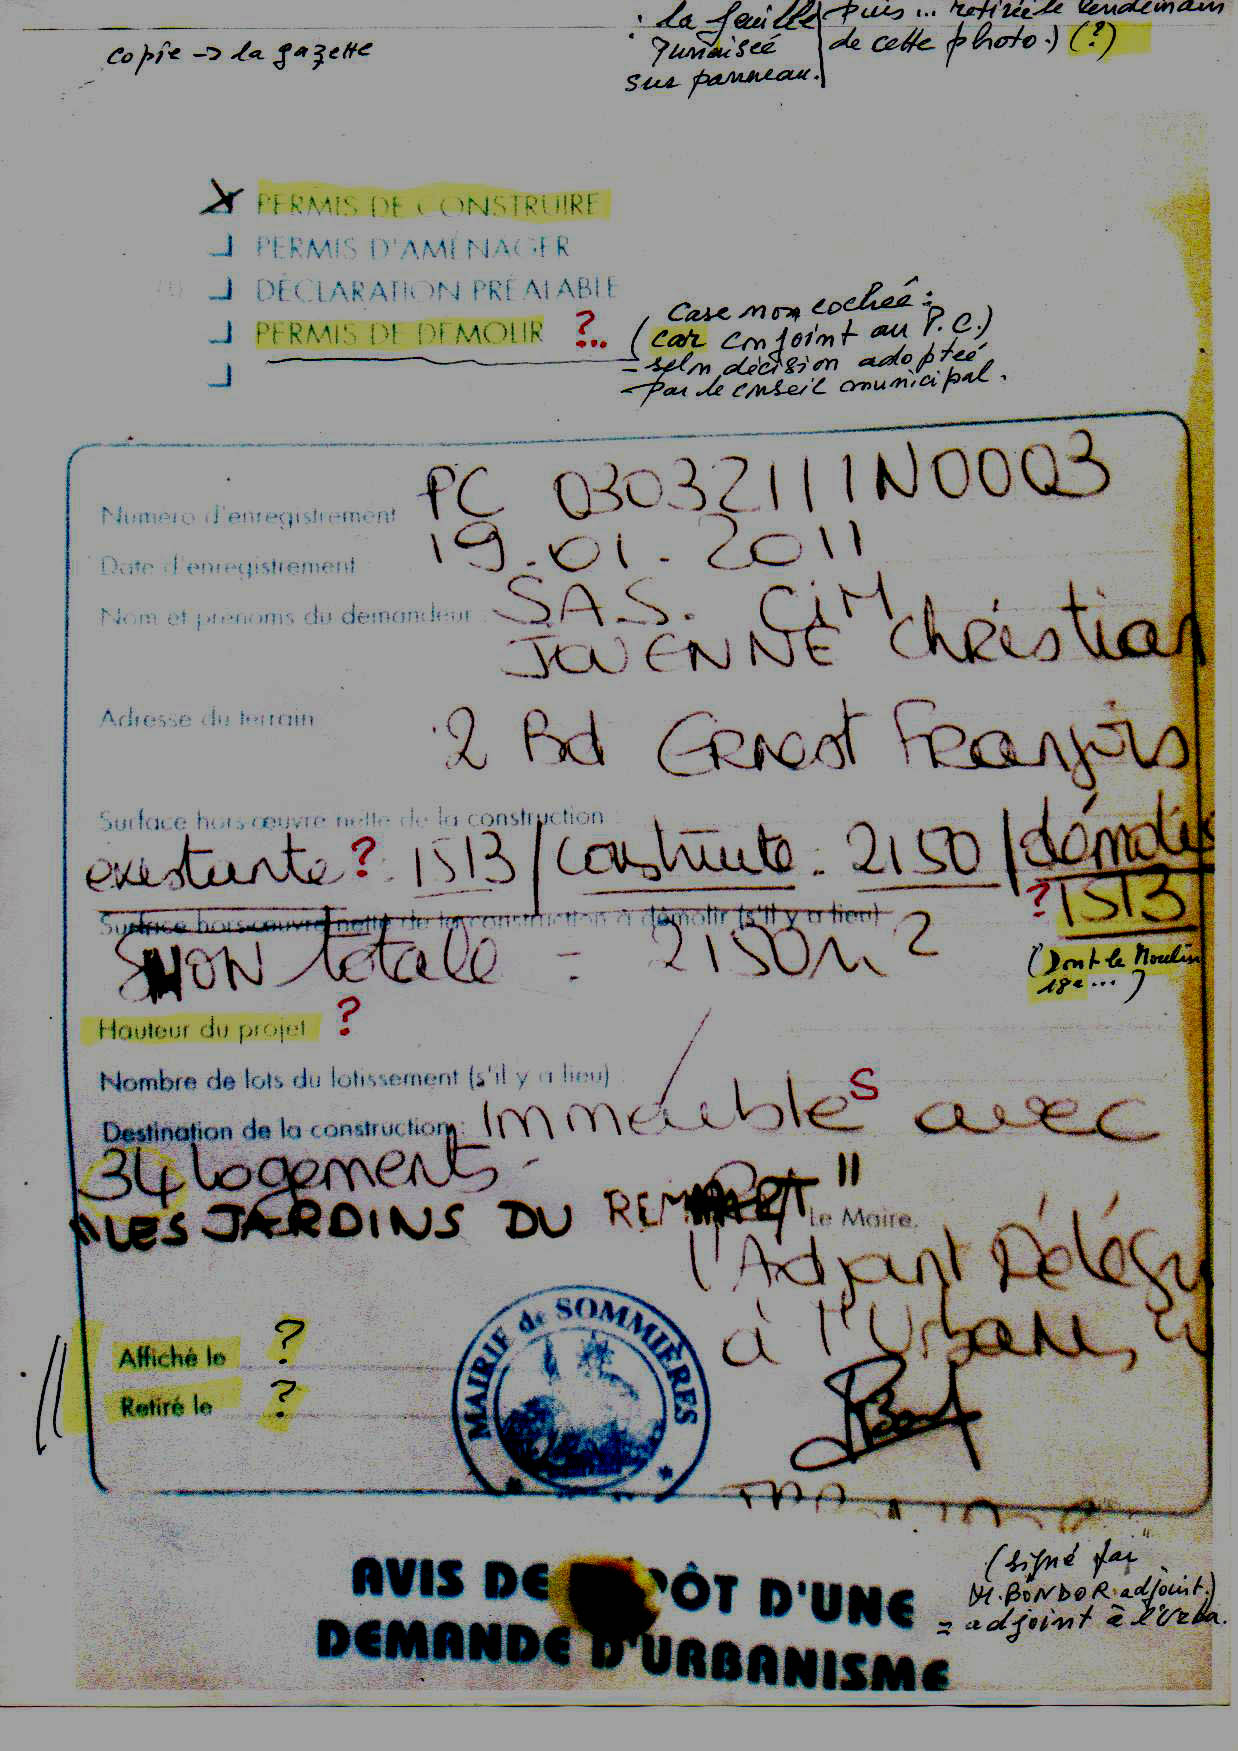 : la feuille puis ... retirée le lendemain
copie -> la gazette
punaisée de cette photo.) (?)
sur panneau.
PERMIS DE CONSTRUIRE
PERMIS D'AMÉNAGER
DÉCLARATION PRÉALABLE
Case non cochée :
PERMIS DE DÉMOLIR ?...
(car conjoint au P.C.)
= selon décision adoptée
par le conseil municipal.
Numéro d'enregistrement PC 03032111N0003
Date d'enregistrement 19.01.2011
Nom et prénoms du demandeur : SAS. CiM
JOUENNE Christian
Adresse du terrain 2 Bd Ernest François
Surface hors œuvre nette de la construction :
existante ? : 1513 / construite : 2150 / démolie
? 1513
Surface hors œuvre nette de la construction à démolir (s'il y a lieu)
SHON totale = 2150 m2
(Dont le Moulin
18e ...)
Hauteur du projet ?
Nombre de lots du lotissement (s'il y a lieu)
Destination de la construction : Immeubles avec
34 logements -
"LES JARDINS DU REMPART"
Le Maire,
l'Adjoint Délégué
à l'Urbanisme
Affiché le ?
Retiré le ?
MAIRIE de SOMMIÈRES
(signé par
M. BONDOR adjoint.)
= adjoint à l'Urba.
AVIS DE DÉPÔT D'UNE
DEMANDE D'URBANISME